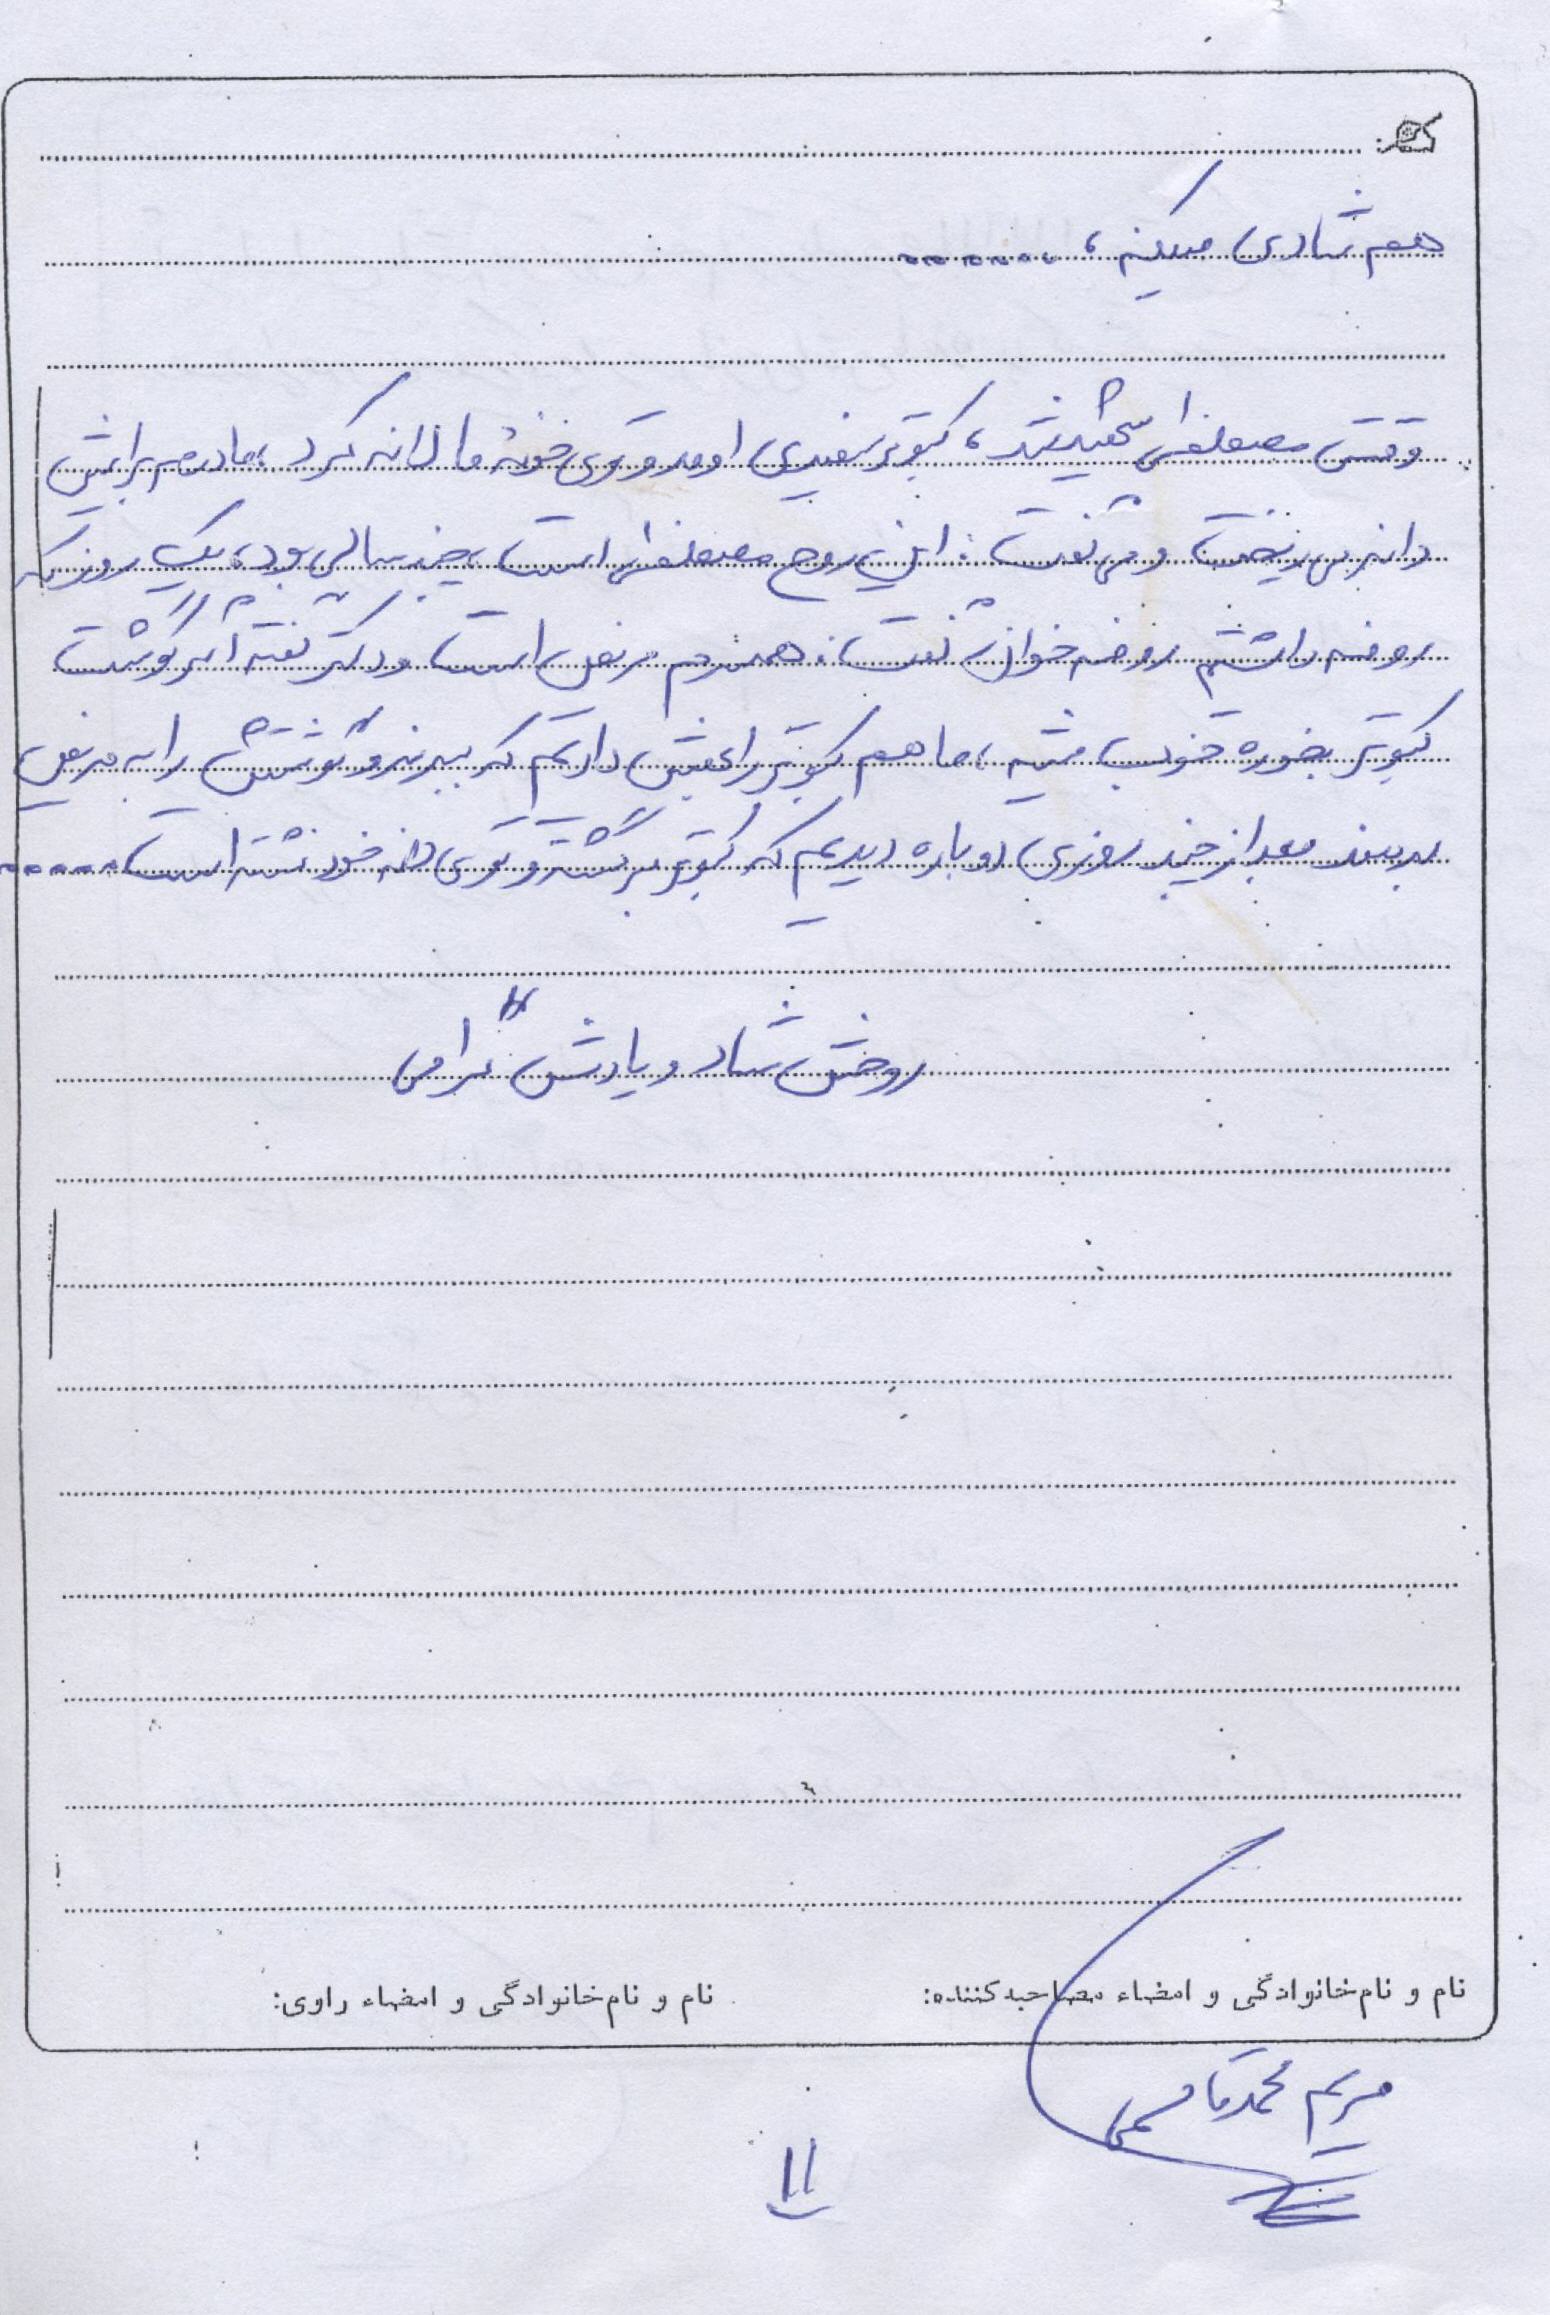 هم شادی میکنه، ......
وقتی مصطفی شهید شد، کبوتر سفیدی اومد و توی خونهٔ ما لانه کرد، مادرم برایش
دانه می ریخت و می گفت: این روح مصطفی است، چند سالی بود، یک روز که
روضه داشتیم روضه خوان گفت: همسرم مریض است و دکتر گفته اگر گوشت
کبوتر بخوره خوب میشه، ما هم کبوتر را بهش دادیم که ببرند و گوشتش را به مریض
بدهند بعد از چند روزی دوباره دیدیم که کبوتر برگشته و توی لانه خود نشسته است.....
روحش شاد و یادش گرامی
نام و نام خانوادگی و امضاء مصاحبه کننده:
نام و نام خانوادگی و امضاء راوی:
مریم محمدقاسمی
۱۱